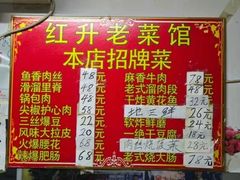 红升老菜馆
本店招牌菜
鱼香肉丝 48元
滑溜里脊 48元
锅包肉 48元
尖椒护心肉 58元
三丝爆豆 22元
风味大拉皮 20元
火爆腰花 68元
辣爆肥肠 68元
麻香牛肉 78元
老式溜肉段 48元
干炸黄花鱼 32元
地三鲜 26元
软炸鲜蘑 24元
一绝干豆腐 18元
28元
老式烧大肠 78元